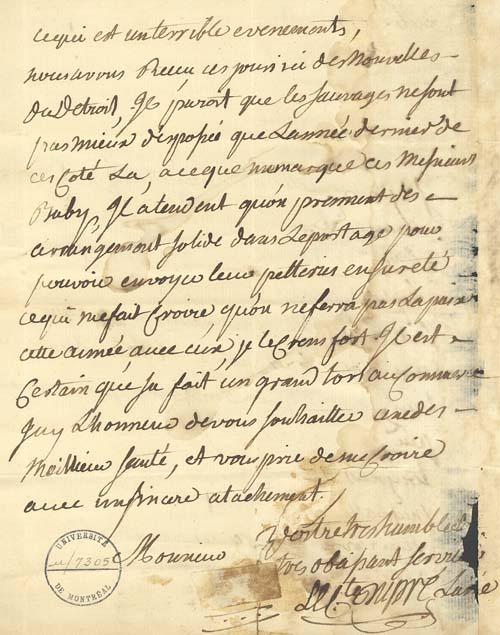 cequi est unterrible evenements,
nous avons Receu ces jours ici des Nouvelles
Du Detroit, Il paroit que les Sauvages nesont
pas mieux disposée que L'année dernier de
ces Coté La, a ceque me marque ces Messieurs
Baby, Il atendent qu'on prennent des
arrangement solide dans Le portage pour
pouvoir envoyer leur pelteries en sureté
cequi me fait Croire qu'on ne ferra pas La paix
cette année avec eux, je le Crens fort. Il est
Certain que sa fait un grand tort au Commerce
jay L'honneur de vous souhaitter une des
Meillieur santé, et vous prie de me Croire
avec un sincere atachement.
Monsieur
Votre tres humble &
tres obaisant servit
St. Lempre
UNIVERSITÉ
u/7305
DE MONTRÉAL